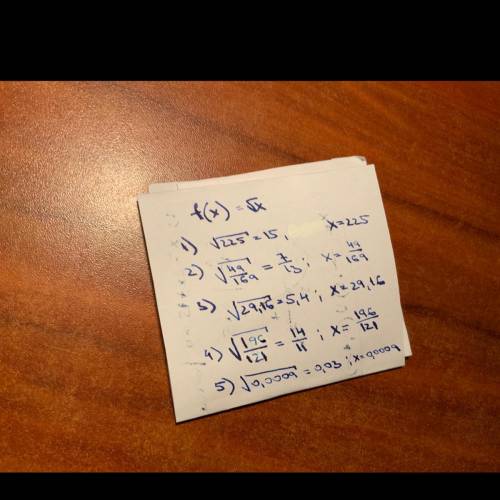 f(x) = √x
1) √225 = 15 ; x = 225
2) √(49/169) = 7/13 ; x = 49/169
3) √29,16 = 5,4 ; x = 29,16
4) √(196/121) = 14/11 ; x = 196/121
5) = 0,03 ;